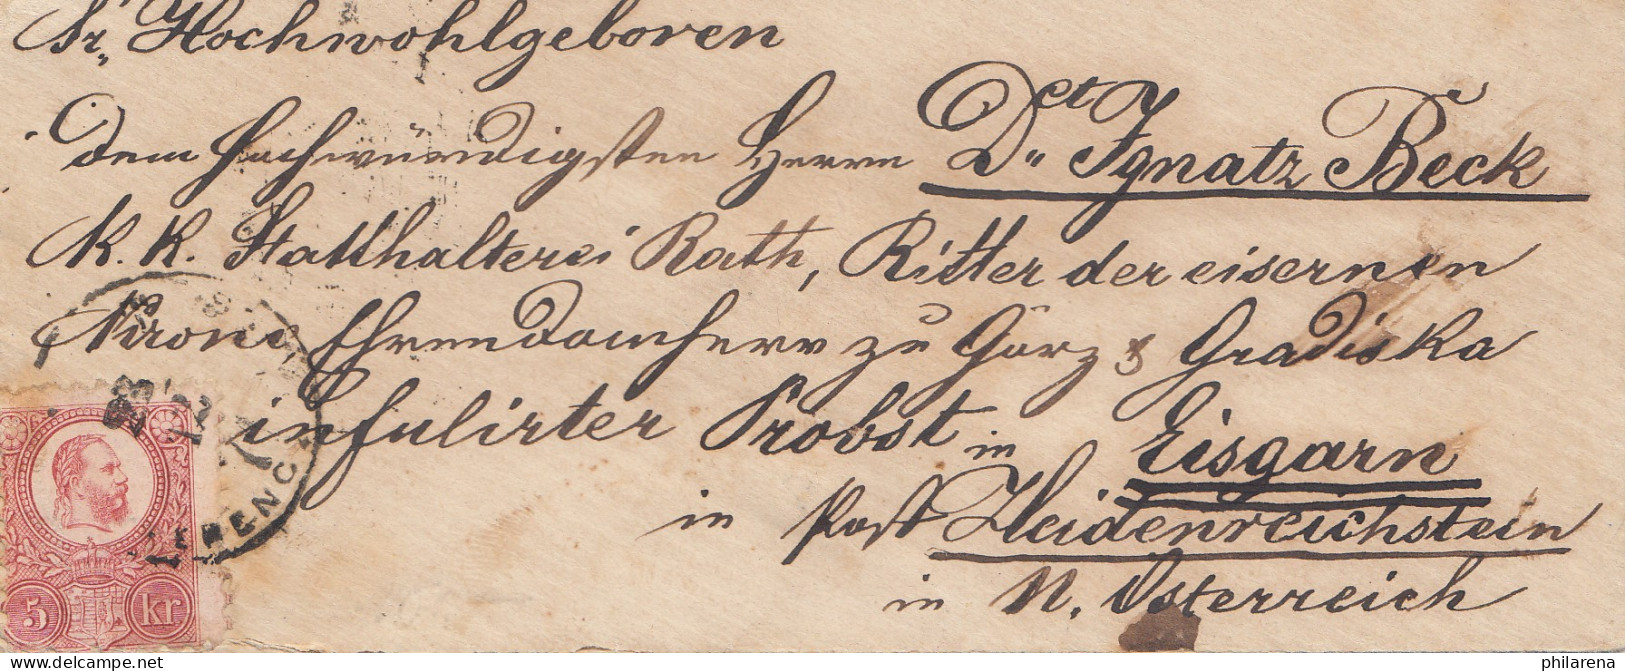 Sr. Hochwohlgeboren
Dem Hochwürdigsten Herrn Dct. Ignatz Beck
K. K. Statthalterei Rath, Ritter der eisernen
Krone Ehrendomherr zu Görz & Gradiska
infulirter Probst in Eisgarn
in Post Heidenreichstein
in N. Österreich
5 kr
philarena.com